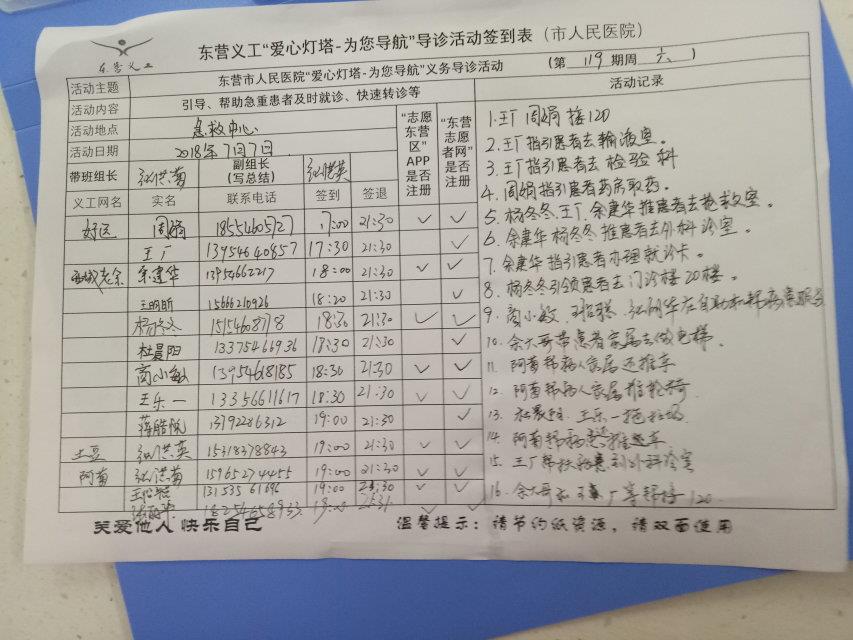 东营义工
东营义工“爱心灯塔-为您导航”导诊活动签到表（市人民医院）
活动主题 东营市人民医院“爱心灯塔-为您导航”义务导诊活动 （第 119 期周 六 ）
活动内容 引导、帮助急重患者及时就诊、快速转诊等
活动地点 急救中心
活动日期 2018年7月7日
带班组长 张洪菊 副组长（写总结） 张洪英
“志愿东营区”APP是否注册 “东营志愿者网”是否注册
义工网名 实名 联系电话 签到 签退
好运 周娟 18554605727 17:00 21:30 ✓ ✓
王厂 13954640857 17:30 21:30 ✓
余建华 13954662217 18:00 21:30 ✓ ✓
王明昕 1566210926 18:20 21:30 ✓
杨冬冬 18:30 21:30 ✓ ✓
杜晨阳 13375466936 18:30 21:30 ✓
商小敏 13954618185 18:30 21:30 ✓ ✓
王乐一 13356611617 18:30 21:30 ✓ ✓
蒋皓帆 13192286312 19:00 21:30 ✓
土豆 张洪英 15318378843 19:00 21:30 ✓ ✓
阿菊 张洪菊 15965274455 19:00 21:30 ✓ ✓
19:00 21:30 ✓ ✓
活动记录
1.王厂 周娟 接120
2.王厂指引患者去输液室。
3.王厂指引患者去检验科
4.周娟指引患者药房取药。
5.杨冬冬.王厂.余建华推患者去抢救室。
6.余建华 杨冬冬 推患者去外科诊室。
7.余建华指引患者办理就诊卡。
8.杨冬冬引领患者去门诊楼20楼。
9.商小敏
10.余大哥带患者家属去做电梯。
11.阿菊帮病人家属还推车
12.阿菊帮病人家属推轮椅
13. 王乐一
14.阿菊帮
15.王厂帮扶 到外科诊室
16.余大哥和 厂等 120
关爱他人 快乐自己
温馨提示：请节约纸资源，请双面使用